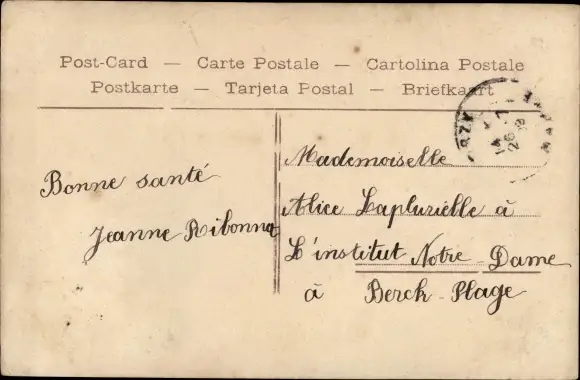 Post-Card — Carte Postale — Cartolina Postale
Postkarte — Tarjeta Postal — Briefkaart
Bonne santé
Jeanne Ribonna
Mademoiselle
Alice Laplurielle à
L'institut Notre-Dame
à Berck-Plage